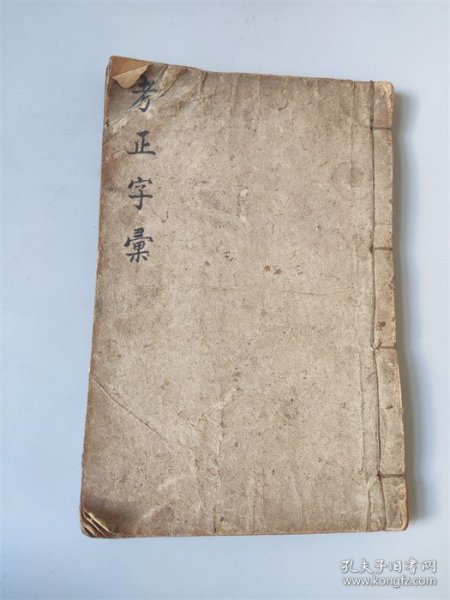 考正字彙
孔夫子旧书网
www.kongfz.com